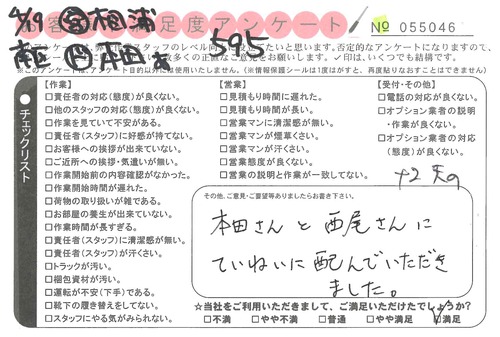 4/19 営 相浦
お客様満足度アンケート
№ 055046
南区 作 本田
595
このアンケートは、弊社スタッフのレベル向上
否定的なアンケートになりますので、
数多くの正直なご意見をお願いします。✓印は、いくつでも結構です。
※このアンケートは、アンケート目的以外に使用いたしません。(※情報保護シールは1度はがすと、再度貼りなおすことはできません)
チェックリスト
【作業】
□責任者の対応(態度)が良くない。
□他のスタッフの対応(態度)が良くない。
□作業を見ていて不安がある。
□責任者(スタッフ)に好感が持てない。
□お客様への挨拶が出来ていない。
□ご近所への挨拶・気遣いが無い。
□作業開始前の内容確認がなかった。
□作業開始時間が遅れた。
□荷物の取り扱いが雑である。
□お部屋の養生が出来ていない。
□作業時間が長すぎる。
□責任者(スタッフ)に清潔感が無い。
□責任者(スタッフ)が汗くさい。
□トラックが汚い。
□梱包資材が汚い。
□運転が不安(下手)である。
□靴下の履き替えをしてない。
□スタッフにやる気がみられない。
【営業】
□見積もり時間に遅れた。
□見積もり時間が長い。
□営業マンに清潔感が無い。
□営業マンが煙草くさい。
□営業マンが汗くさい。
□営業態度が良くない。
□営業の説明と作業が一致してない。
【受付・その他】
□電話の対応が良くない。
□オプション業者の説明
・作業が良くない。
□オプション業者の対応
(態度)が良くない。
その他、ご意見・ご要望等ありましたらお書き下さい。
本田さんと西尾さんに
ていねいに配んでいただき
ました。
☆当社をご利用いただきまして、ご満足いただけたでしょうか?
□不満 □やや不満 □普通 □やや満足 ☑満足